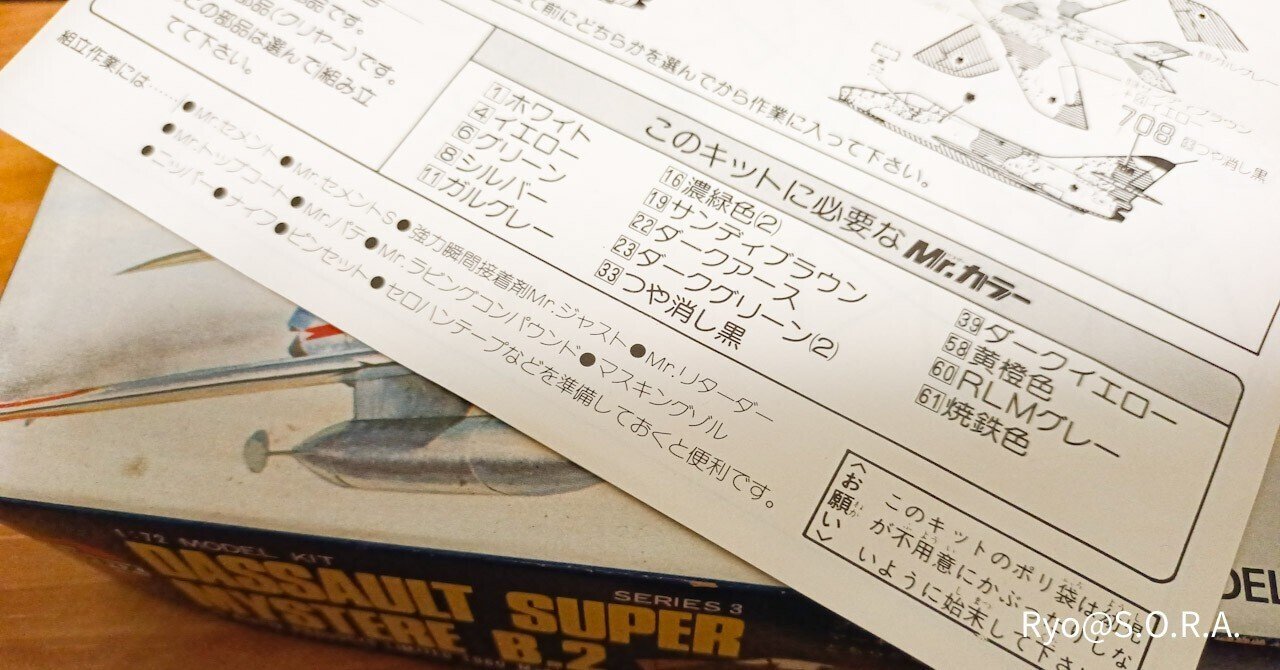 部品です。
部品(クリヤー)です。
この部品は選んで組み立
てて下さい。
て前にどちらかを選んでから作業に入って下さい。
708
ほつや消し黒
このキットに必要なMr.カラー
1 ホワイト
4 イエロー
6 グリーン
8 シルバー
11 ガルグレー
16 濃緑色(2)
19 サンディブラウン
22 ダークアース
23 ダークグリーン(2)
33 つや消し黒
39 ダークイエロー
58 黄橙色
60 RLMグレー
61 焼鉄色
組立作業には……●Mr.セメント●Mr.セメントS●強力瞬間接着剤Mr.ジャスト●Mr.リターダー
●Mr.トップコート●Mr.パテ●Mr.ラビングコンパウンド●マスキングゾル
●ニッパー●ナイフ●ピンセット●セロハンテープなどを準備しておくと便利です。
<お願い>
このキットのポリ袋は
が不用意にかぶ
いように始末して下さ
1:72 MODEL KIT
SERIES 3
DASSAULT SUPER
MYSTERE B.2
Ryo@S.O.R.A.